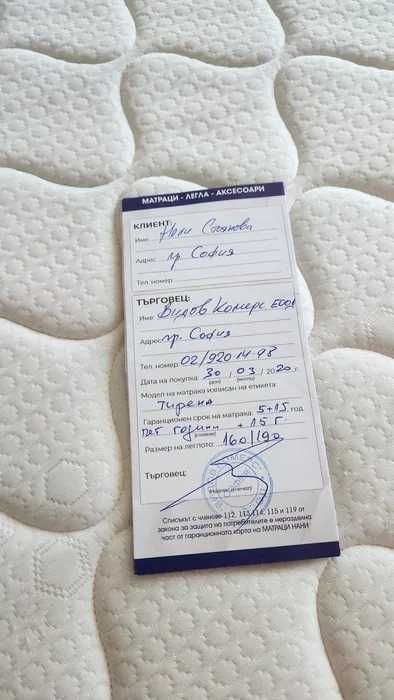 МАТРАЦИ - ЛЕГЛА - АКСЕСОАРИ
КЛИЕНТ:
Име: Нани Стоянова
Адрес: гр. София
Тел. номер:
ТЪРГОВЕЦ:
Име: Видов Комерс ЕООД
Адрес: гр. София
Тел. номер: 02/920 14 98
Дата на покупка: 30 / 03 / 2020 г.
(ден) (месец)
Модел на матрака изписан на етикета:
Тирена
Гаранционен срок на матрака: 5+15 год.
пет години + 15 г.
(словом)
Размер на леглото: 160/190
Търговец:
(подпис, печат)
Списъкът с членове 112, 113, 114, 115 и 119 от
закона за защита на потребителите е неразделна
част от гаранционната карта на МАТРАЦИ НАНИ